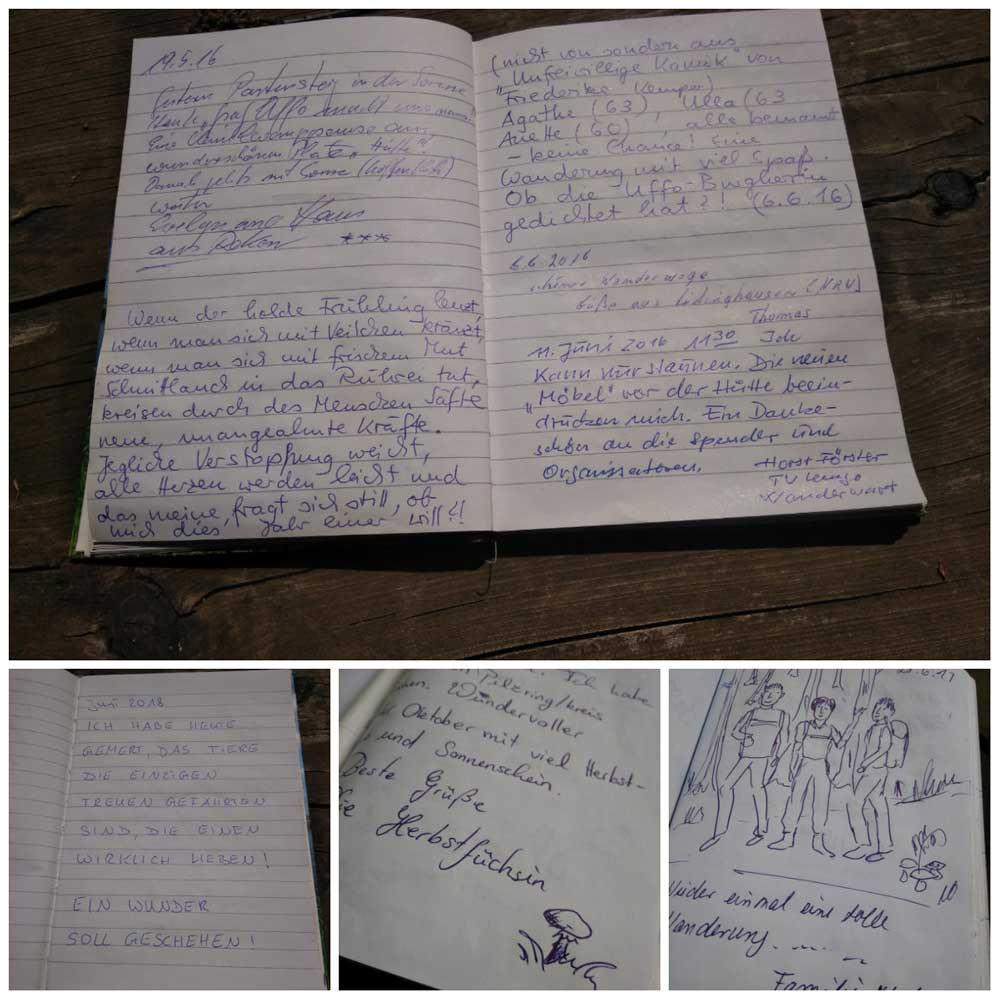 19.5.16
Gestern Pastensteig in der Sonne
Heute
eine
wunderschönen Platz „Hütte"
mit Sonne (hoffentlich)
weiter
Evelyn und Klaus
aus ***
Wenn der holde Frühling lenzt,
wenn man sich mit Veilchen kränzt,
wenn man sich mit frischem Mut
Schnittlauch in das Rührei tut,
kreisen durch des Menschen Säfte
neue, unangeahnte Kräfte.
Jegliche Verstopfung weicht,
alle Herzen werden leicht und
das meine fragt sich still, ob
mich dies Jahr einer will?!
(nicht von sondern aus
"Unfreiwillige Komik" von
Friederike Kemper)
Agathe (63), Ulla (63
Anette (60), alle bemannt
- keine Chance! Eine
Wanderung mit viel Spaß.
Ob die Uffo-Burgherrin
gedichtet hat?! (6.6.16)
6.6.2016
schöner Wanderwege
Grüße aus Lüdinghausen (NRW)
Thomas
11. Juni 2016 11 30 Ich
kann nur staunen. Die neuen
„Möbel" vor der Hütte beein-
drucken mich. Ein Danke-
schön an die Spender und
Organisatoren.
Horst Förster
TV Lemgo
Wanderwart
Juni 2018
ICH HABE HEUTE
GEMERT, DAS TIERE
DIE EINZIGEN
TREUEN GEFÄHRTEN
SIND, DIE EINEN
WIRKLICH LIEBEN!
EIN WUNDER
SOLL GESCHEHEN!
Ich habe
Pilzring/kreis
Wundervoller
Oktober mit viel Herbst-
und Sonnenschein.
Beste Grüße
die Herbstfüchsin
.6.17
Wieder einmal eine tolle
Wanderung.....
Familie